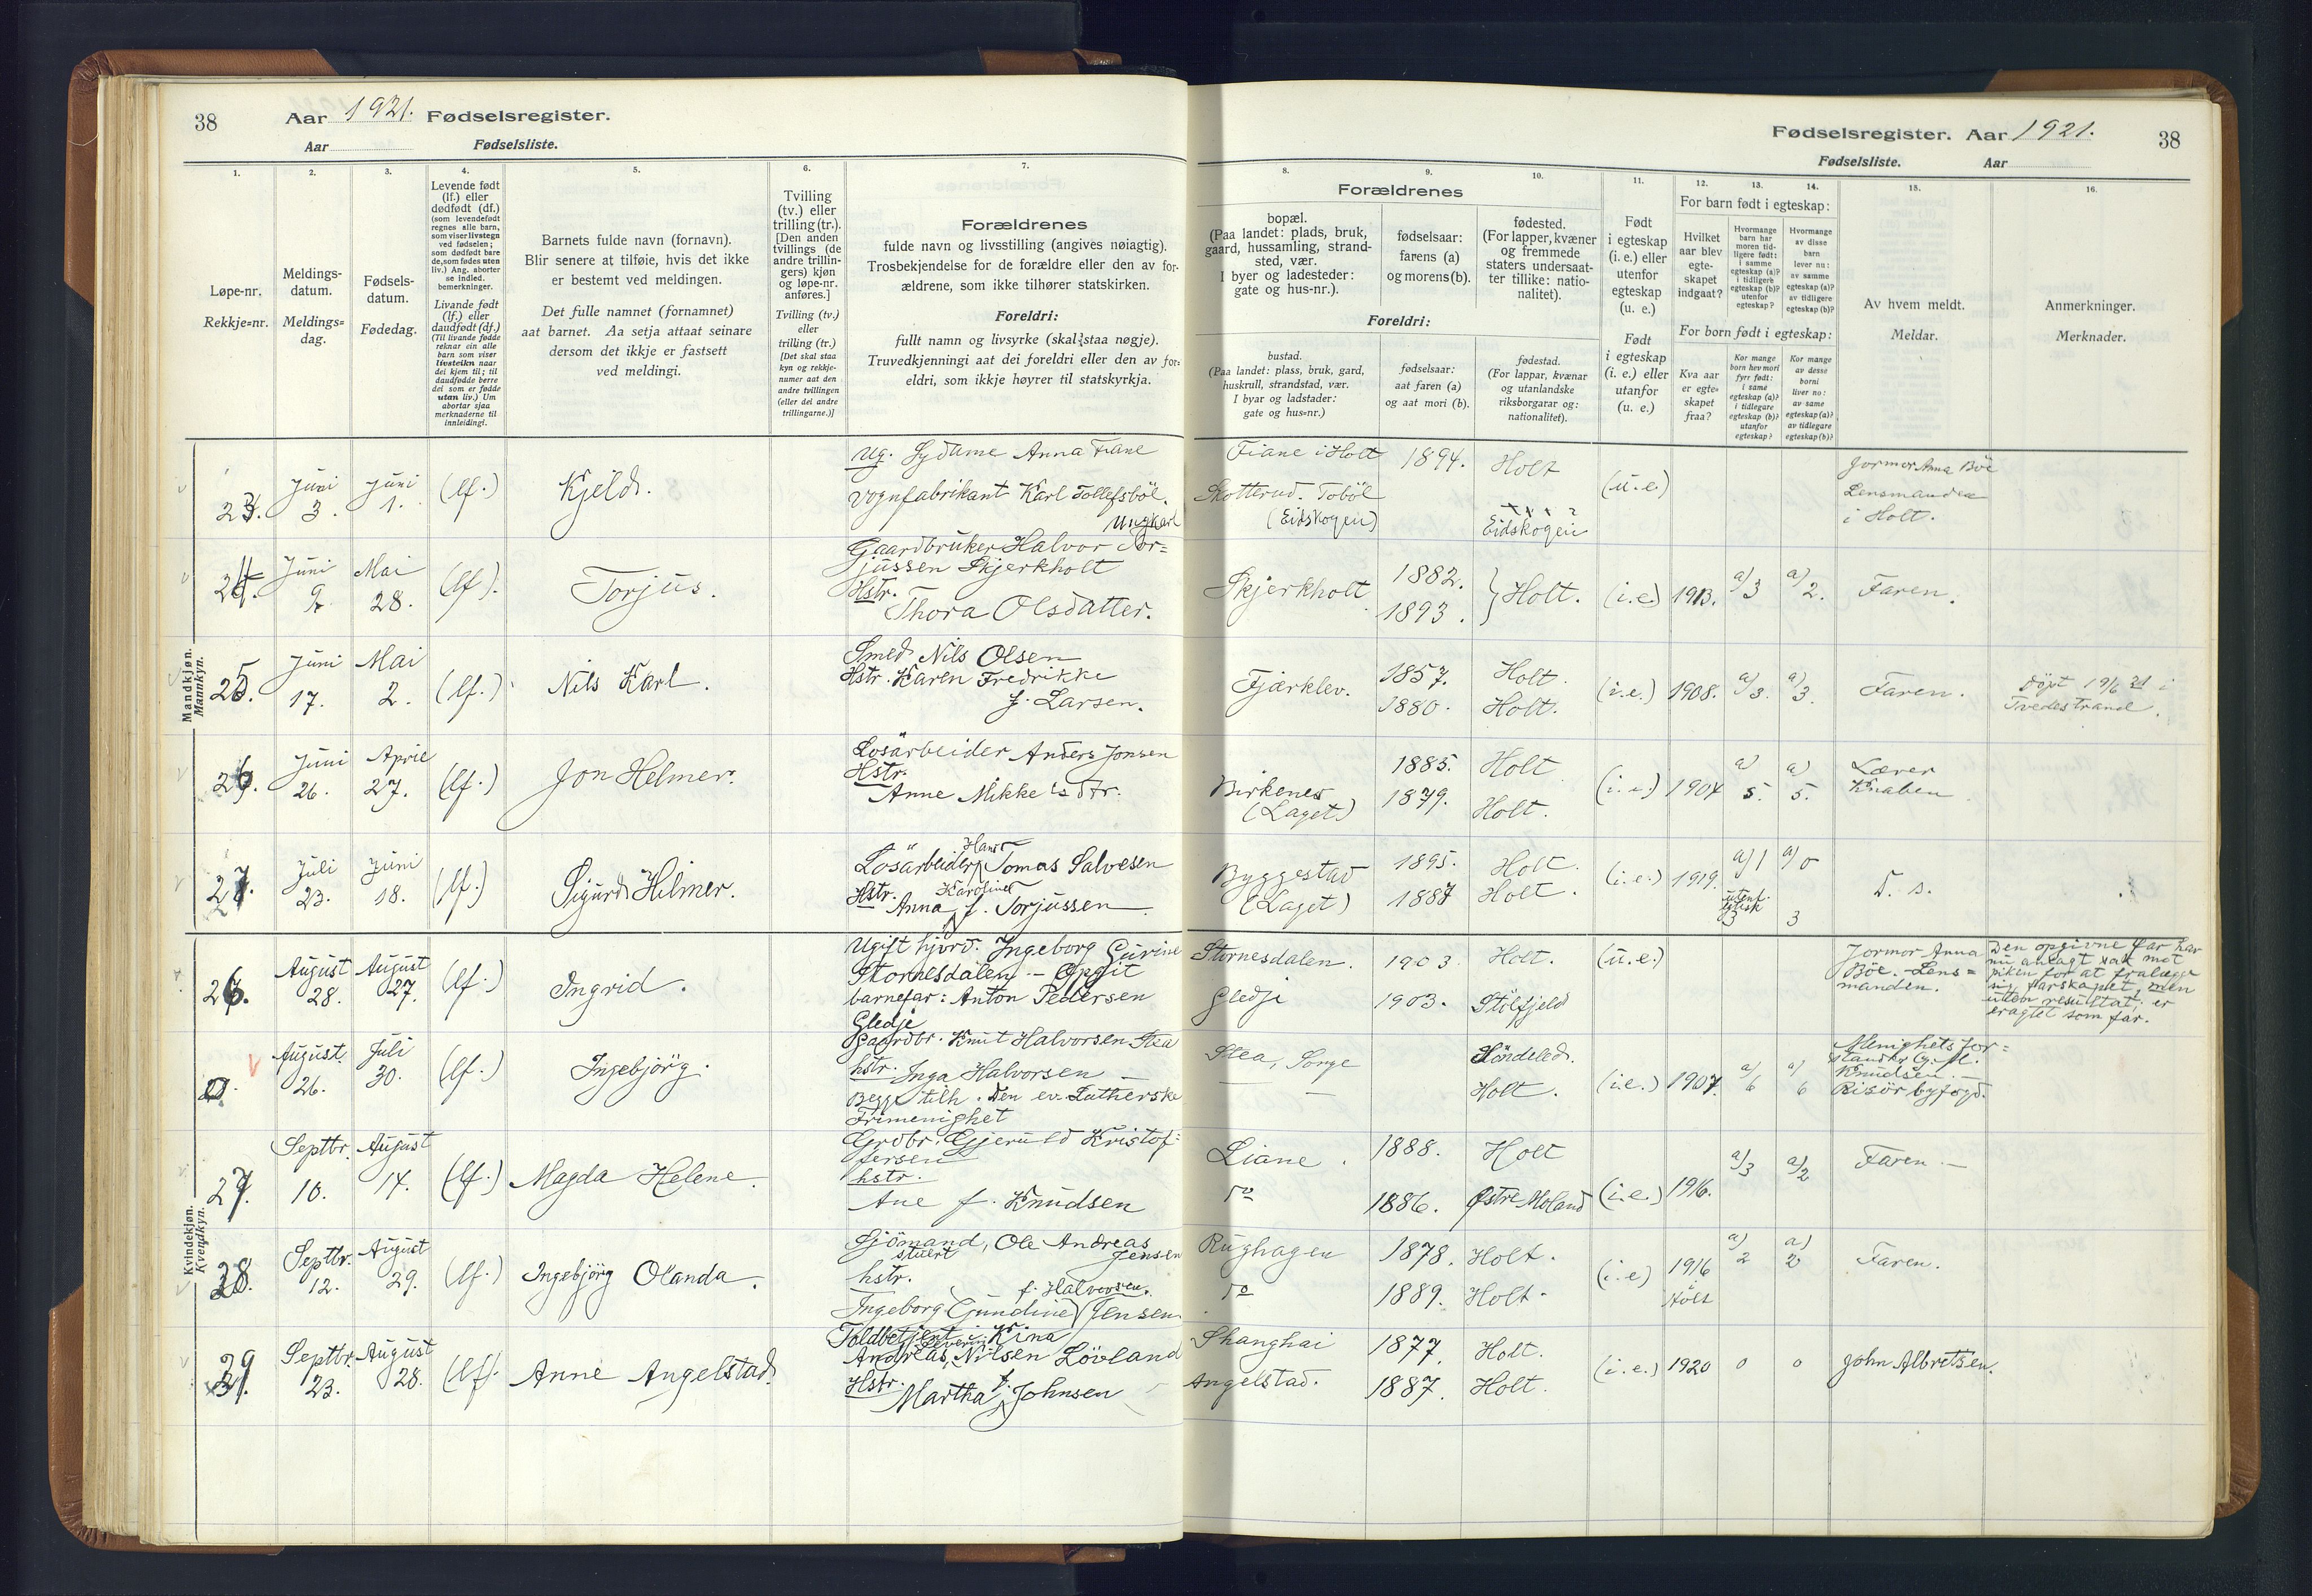 38
Aar 1921. Fødselsregister.
Aar Fødselsliste.
1.
2.
3.
4.
5.
6.
7.
Løpe-nr.
Rekkje=nr.
Meldings-
datum.
Meldings=
dag.
Fødsels-
datum.
Fødedag.
Levende født
(lf.) eller
dødfødt (df.)
(som levendefødt
regnes alle barn,
som viser livstegn
ved fødselen;
som dødfødt bare
de, som fødes uten
liv.) Ang. aborter
se indled.
bemerkninger.
Livande født
(lf.) eller
daudfødt (df.)
(Til livande fødde
reknar ein alle
barn som viser
livsteikn naar
dei kjem til; til
daudfødde berre
dei som er fødde
utan liv.) Um
abortar sjaa
merknaderne til
innleidingi.
Barnets fulde navn (fornavn).
Blir senere at tilføie, hvis det ikke
er bestemt ved meldingen.
Det fulle namnet (fornamnet)
aat barnet. Aa setja attaat seinare
dersom det ikkje er fastsett
ved meldingi.
Tvilling
(tv.) eller
trilling (tr.).
[Den anden
tvillings (de
andre trillin-
gers) kjøn
og løpe-nr.
anføres.]
Tvilling (tv.)
eller
trilling (tr.)
[Det skal staa
kyn og rekkje-
numer aat den
andre tvillingen
(eller dei andre
trillingarne.)]
Forældrenes
fulde navn og livsstilling (angives nøiagtig).
Trosbekjendelse for de forældre eller den av for-
ældrene, som ikke tilhører statskirken.
Foreldri:
fullt namn og livsyrke (skal staa nøgje).
Truvedkjenningi aat dei foreldri eller den av for=
eldri, som ikkje høyrer til statskyrkja.
Mandkjøn.
Mannkyn.
23. Juni 3. Juni 1. (lf.) Kjeld.
Ug. Sydame Anna Fiane
Vognfabrikant Karl Tollefsböl.
Ungkarl
24. Juni 9. Mai 28. (lf.) Torjus.
Gaardbruker Halvor Tor=
jussen Skjerkholt
Hstr.
Thora Olsdatter.
25. Juni 17. Mai 2. (lf.) Nils Karl.
Smed Nils Olsen
Hstr. Karen Fredrikke
f. Larsen.
26. Juni 26. April 27. (lf.) Jon Helmer.
Løsarbeider Anders Jonsen
Hstr.
Anne Mikke'sdtr.
27. Juli 23. Juni 18. (lf.) Sigurd Hilmer.
Hans
Lösarbeider Tomas Salvesen
Karoline
Hstr. Anna f. Torjussen
Kvindekjøn.
Kvendkyn.
26. August 28. August 27. (lf.) Ingrid.
Ugift hjvrd. Ingeborg Gurine
Stornesdalen - Opgit
barnefar: Anton Pedersen
Gledje
0 August 26. Juli 30. (lf.) Ingebjörg.
Gaardbr. Knut Halvorsen Stea
hstr. Inga Halvorsen
Begge tilh. Den ev. Lutherske
Frimenighet
27. Septbr. 10. August 14. (lf.) Magda Helene.
Grdbr. Gjeruld Kristof=
fersen
hstr.
Ane f. Knudsen
28. Septbr. 12. August 29. (lf.) Ingebjörg Olanda.
Sjömand, Ole Andreas
stuert Jensen
hstr.
f. Halvorsen.
Ingeborg (Gundine) Jensen.
29. Septbr. 23. August 28. (lf) Anne Angelstad.
Toldbetjent i Kina
Severin
Andreas Nilsen Lövland
Hstr.
Martha f. Johnsen
Fødselsregister. Aar 1921. 38
Fødselsliste. Aar
8.
9.
10.
11.
12.
13.
14.
15.
16.
Forældrenes
bopæl.
(Paa landet: plads, bruk,
gaard, hussamling, strand-
sted, vær.
I byer og ladesteder:
gate og hus-nr.).
fødselsaar:
farens (a)
og morens (b).
fødested.
(For lapper, kvæner
og fremmede
staters undersaat-
ter tillike: natio-
nalitet).
Foreldri:
bustad.
(Paa landet: plass, bruk, gard,
huskrull, strandstad, vær.
I byar og ladstader:
gate og hus=nr.)
fødselsaar:
aat faren (a)
og aat mori (b).
fødestad.
(For lappar, kvænar
og utanlandske
riksborgarar og:
nationalitet).
Født
i egteskap
(i. e.) eller
utenfor
egteskap
(u. e.)
Født
i egteskap
(i. e.) eller
utanfor
(u. e.)
For barn født i egteskap:
Hvilket
aar blev
egte-
skapet
indgaat?
Hvormange
barn har
moren tid-
ligere født:
i samme
egteskap (a)?
i tidligere
egteskap (b)?
utenfor
egteskap?
Hvormange
av disse
barn
lever nu:
av samme
egteskap (a)?
av tidligere
egteskap (b)?
For born født i egteskap:
Kva aar
er egte=
skapet
fraa?
Kor mange
born hev mori
fyrr født:
i same
egteskap (a)?
i tidlegare
egteskap (b)?
utanfor
egteskap?
Kor mange
av desse
borni
liver no:
av same
egteskap (a)?
av tidlegare
egteskap (b)?
Av hvem meldt.
Meldar.
Anmerkninger.
Merknader.
Fiane i Holt 1894. Holt (u.e.)
Skotterud. Toböl
(Eidskogen) Eidskogen
Jormor Anna Böe
Lensmanden
i Holt.
Skjerkholt 1882. 1893. Holt. (i.e.) 1913. a/3 a/2. Faren.
Fjærklev. 1857. Holt. (i.e.) 1908. a/3. a/3. Faren.
1880. Holt.
Döpt 19/6 21 i
Tvedestrand.
Birkenes
(Laget)
1885. Holt (i.e.) 1904 a) 5. a) 5. Lærer
1879. Holt. Knaben
Byggestad
(Laget)
1895. Holt. (i.e.) 1919. a/1 a/0 D. s.
1887 Holt.
utenf.
egtsk
3 3
Stornesdalen. 1903. Holt. (u.e.)
Gledje 1903. Stölfjeld
Jormor Anna
Böe. - Lens=
manden.
Den opgivne far har
nu anlagt sak mot
piken for at fralægge
sig farskapet, men
uten resultat; er
eragtet som far.
Stea, Songe Söndeled.
Holt. (i.e.) 1907. a/6 a/6
Menighetsfor=
stander G. M.
Knudsen. -
Risör byfogd.
Liane. 1888. Holt
do 1886. Østre Moland (i.e.) 1916. a/3 a/2 Faren -
Rughagen 1878. Holt. (i.e) 1916 a) 2 a) 2 Faren.
do 1889. Holt. i Holt
Shanghai 1877. Holt. (i.e.) 1920 0 0 John Albretsen.
Angelstad. 1887. Holt.